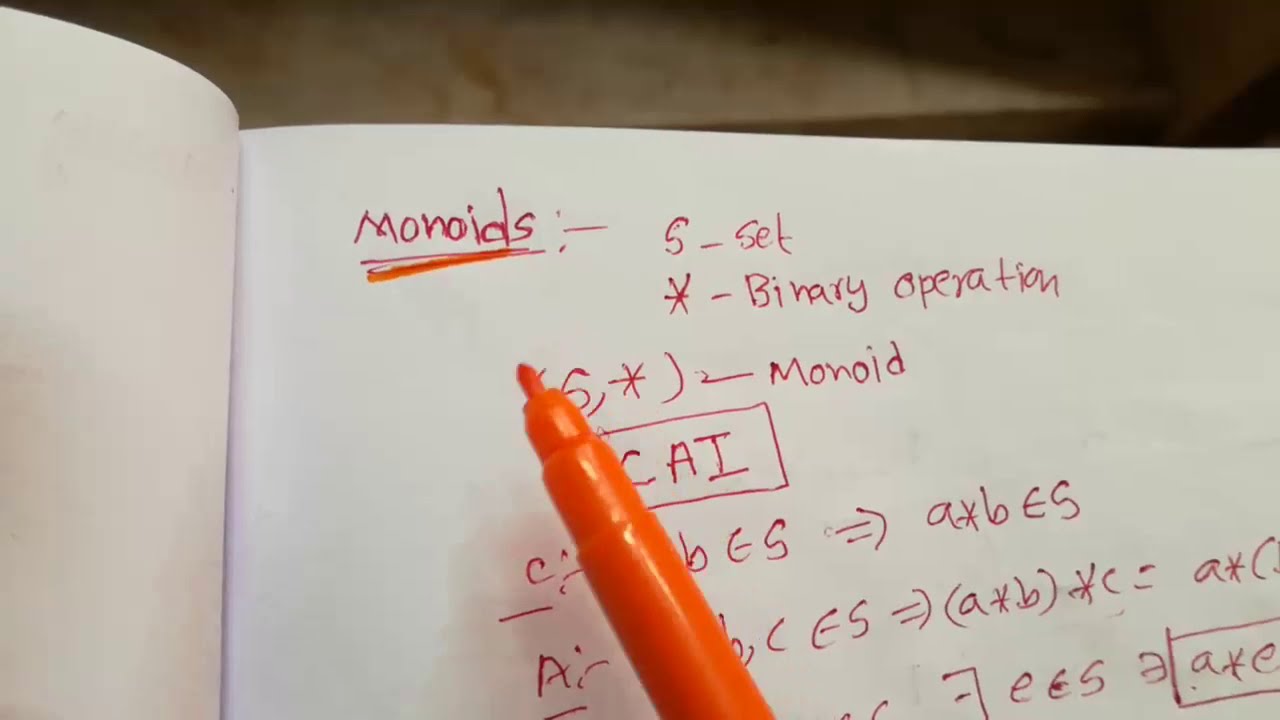 Monoids :- S - Set
* - Binary operation
(S, *) - Monoid
CAI
C:- b ∈ S ⇒ a*b ∈ S
A:- b, c ∈ S ⇒ (a*b)*c = a*(
∃ e ∈ S ∋ a*e